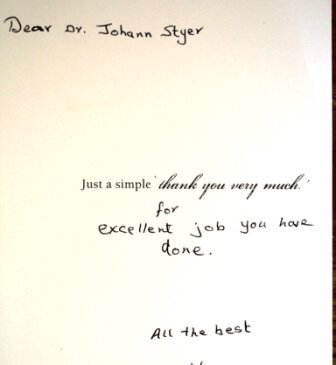 Dear Dr. Johann Styer
Just a simple 'thank you very much.'
for
excellent job you have
done.
All the best